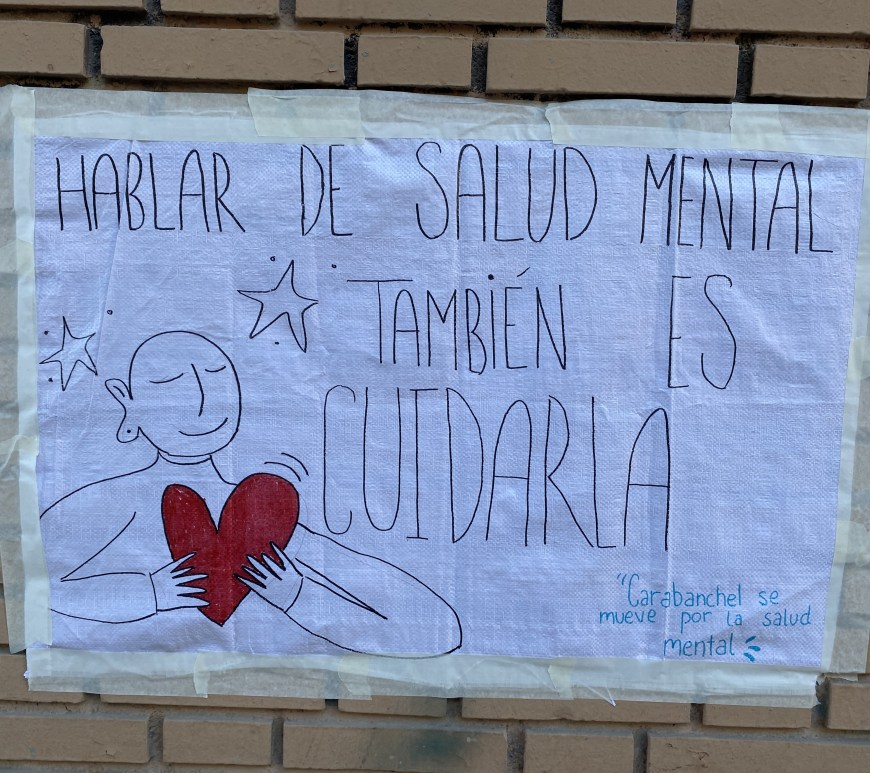 HABLAR DE SALUD MENTAL
TAMBIÉN ES
CUIDARLA
"Carabanchel se
mueve por la salud
mental